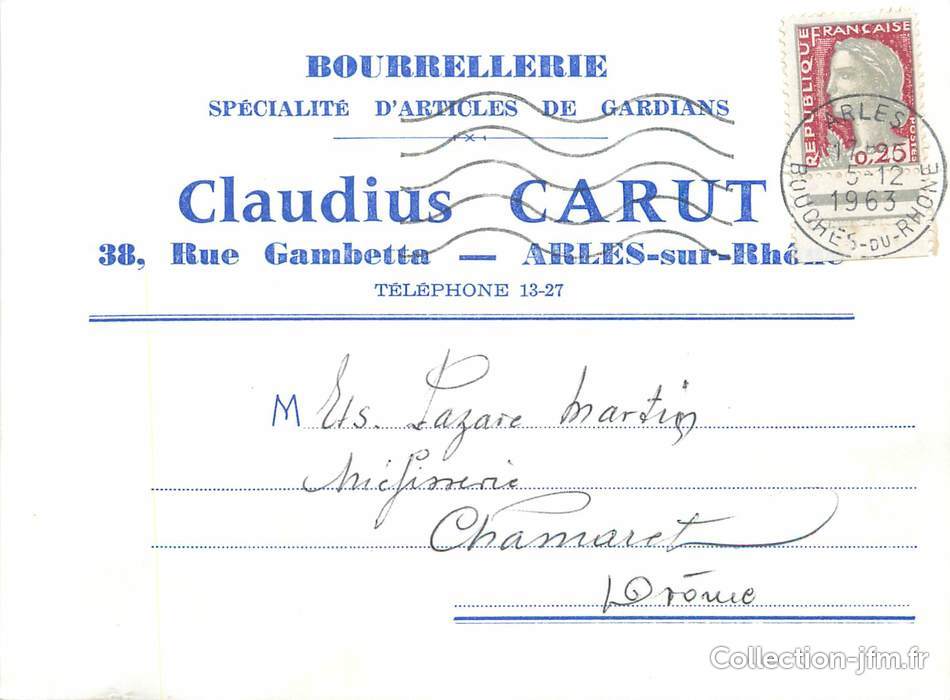 BOURRELLERIE
SPÉCIALITÉ D'ARTICLES DE GARDIANS
Claudius CARUT
38, Rue Gambetta — ARLES-sur-Rhône
TÉLÉPHONE 13-27
RÉPUBLIQUE FRANÇAISE
POSTES
0,25
ARLES
5-12
1963
BOUCHES-DU-RHONE
M Ets. Lazare Martin
Mégisserie
Chamaret
Drôme
Collection-jfm.fr